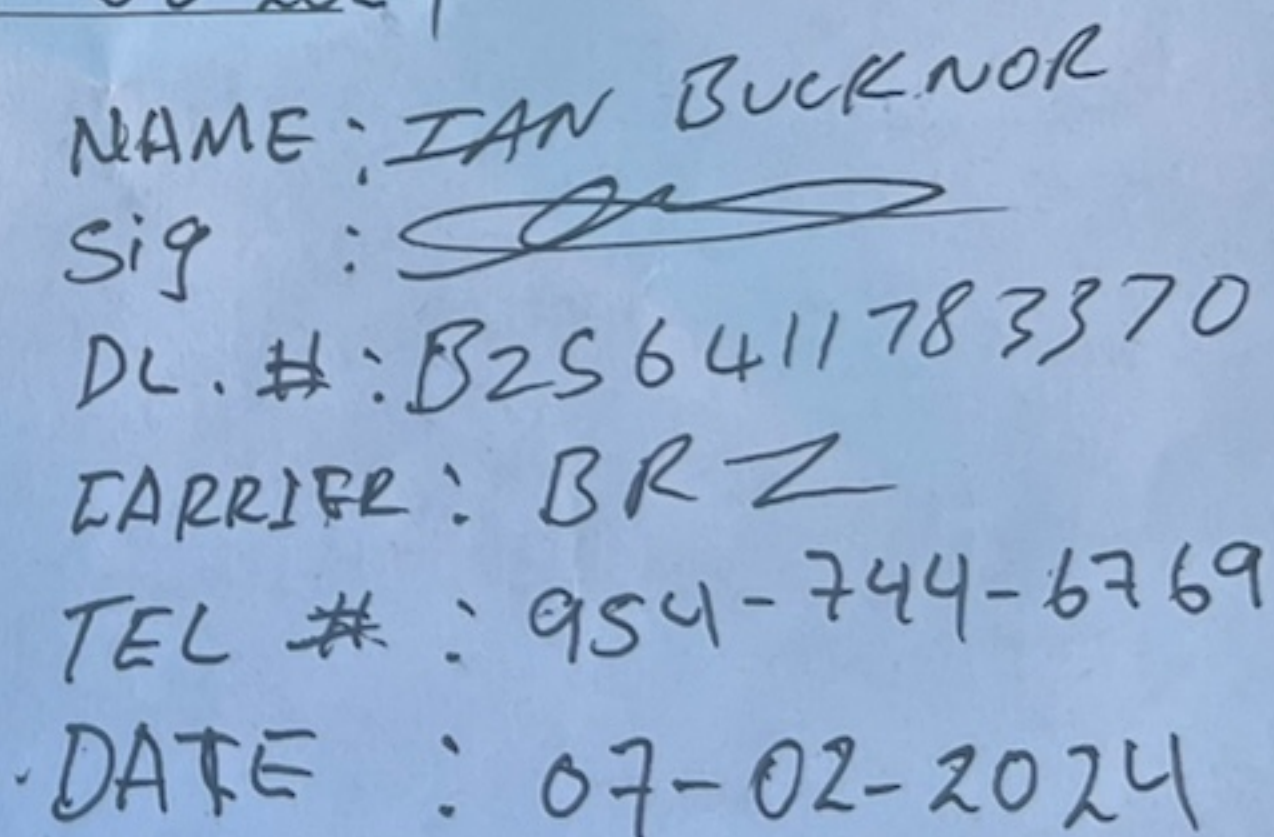 NAME: IAN BUCKNOR
Sig :
DL. #: B256411783370
CARRIER: BRZ
TEL # : 954-744-6769
DATE : 07-02-2024